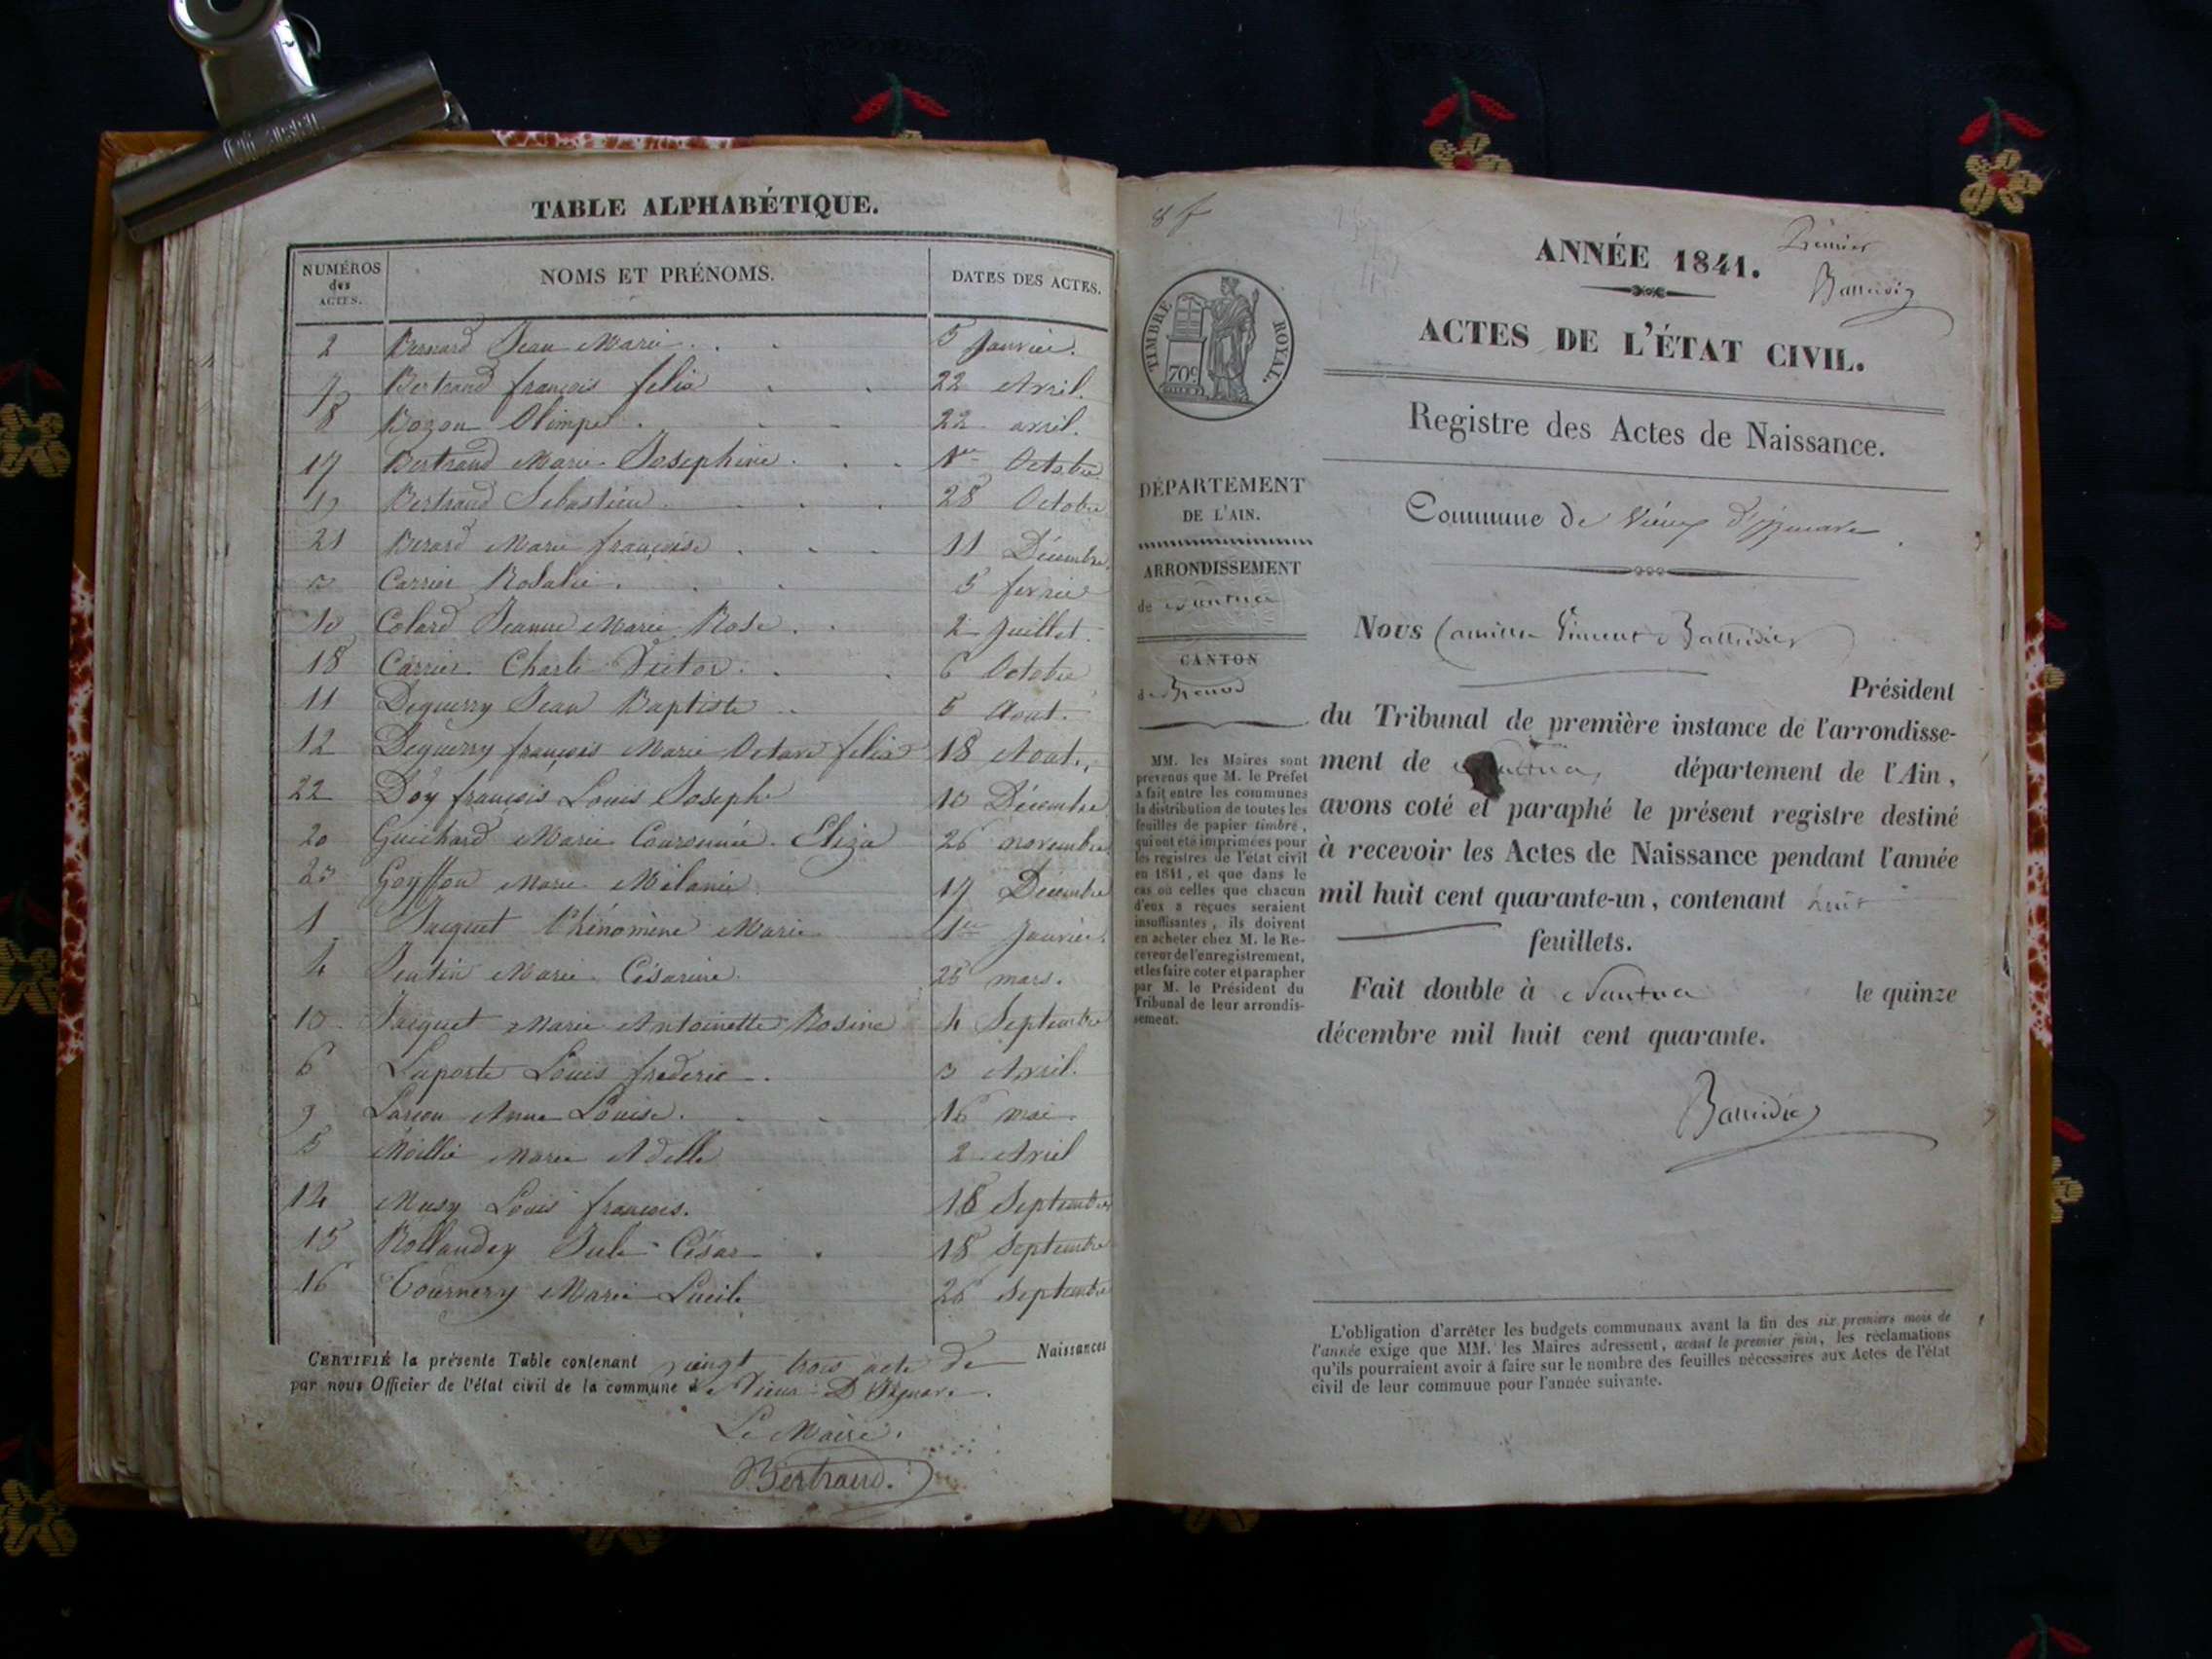 TABLE ALPHABÉTIQUE.
NUMÉROS des ACTES. NOMS ET PRÉNOMS. DATES DES ACTES.
2 Bernard Jean Marie 5 Janvier.
7 Bertrand françois felix 22 Avril.
8 Bozon Olimpe 22 avril.
17 Bertrand Marie Josephine 1er Octobre
19 Bertrand Sebastien 28 Octobre
21 Berard Marie françoise 11 Décembre
3 Carrier Rosalie 5 fevrier
10 Colard Jeanne Marie Rose 2 Juillet.
18 Carrier Charle Victor 6 Octobre
11 Deguerry Jean Baptiste 5 Aout.
12 Deguerry françois Marie Octave felix 18 Aout.
22 Doy françois Louis Joseph 10 Décembre
20 Guichard Marie Couronnée Eliza 26 novembre
23 Goyffon Marie Mélanie 17 Décembre
1 Jacquet Phénomène Marie 1er Janvier.
4 Jentin Marie Césarine 25 mars.
13 Jacquet Marie Antoinette Rosine 4 Septembre
6 Laporte Louis frederic 3 Avril.
9 Anne Louise. 16 mai
5 Moillie Marie Adelle 2 Avril
14 Musy Louis françois. 18 Septembre
15 Rollandey Jule César 18 Septembre
16 Tournery Marie Lucile 26 Septembre
CERTIFIÉ la présente Table contenant vingt trois acte de Naissances
par nous Officier de l'état civil de la commune de Vieux D'Izenave.
Le Maire.
Bertrand.
8 f
TIMBRE ROYAL.
70c
ANNÉE 1841.
Premier
ACTES DE L'ÉTAT CIVIL.
Registre des Actes de Naissance.
Commune de Vieux d'Izenave
DÉPARTEMENT
DE L'AIN.
ARRONDISSEMENT
de Nantua
CANTON
de Brenod
MM. les Maires sont
prévenus que M. le Préfet
a fait entre les communes
la distribution de toutes les
feuilles de papier timbré,
qui ont été imprimées pour
les registres de l'état civil
en 1841, et que dans le
cas où celles que chacun
d'eux a reçues seraient
insuffisantes, ils doivent
en acheter chez M. le Re-
ceveur de l'enregistrement,
et les faire coter et parapher
par M. le Président du
Tribunal de leur arrondis-
sement.
Nous Camille Vincent
Président
du Tribunal de première instance de l'arrondisse-
ment de Nantua, département de l'Ain,
avons coté et paraphé le présent registre destiné
à recevoir les Actes de Naissance pendant l'année
mil huit cent quarante-un, contenant huit
feuillets.
Fait double à Nantua le quinze
décembre mil huit cent quarante.
L'obligation d'arrêter les budgets communaux avant la fin des six premiers mois de
l'année exige que MM. les Maires adressent, avant le premier juin, les réclamations
qu'ils pourraient avoir à faire sur le nombre des feuilles nécessaires aux Actes de l'état
civil de leur commune pour l'année suivante.